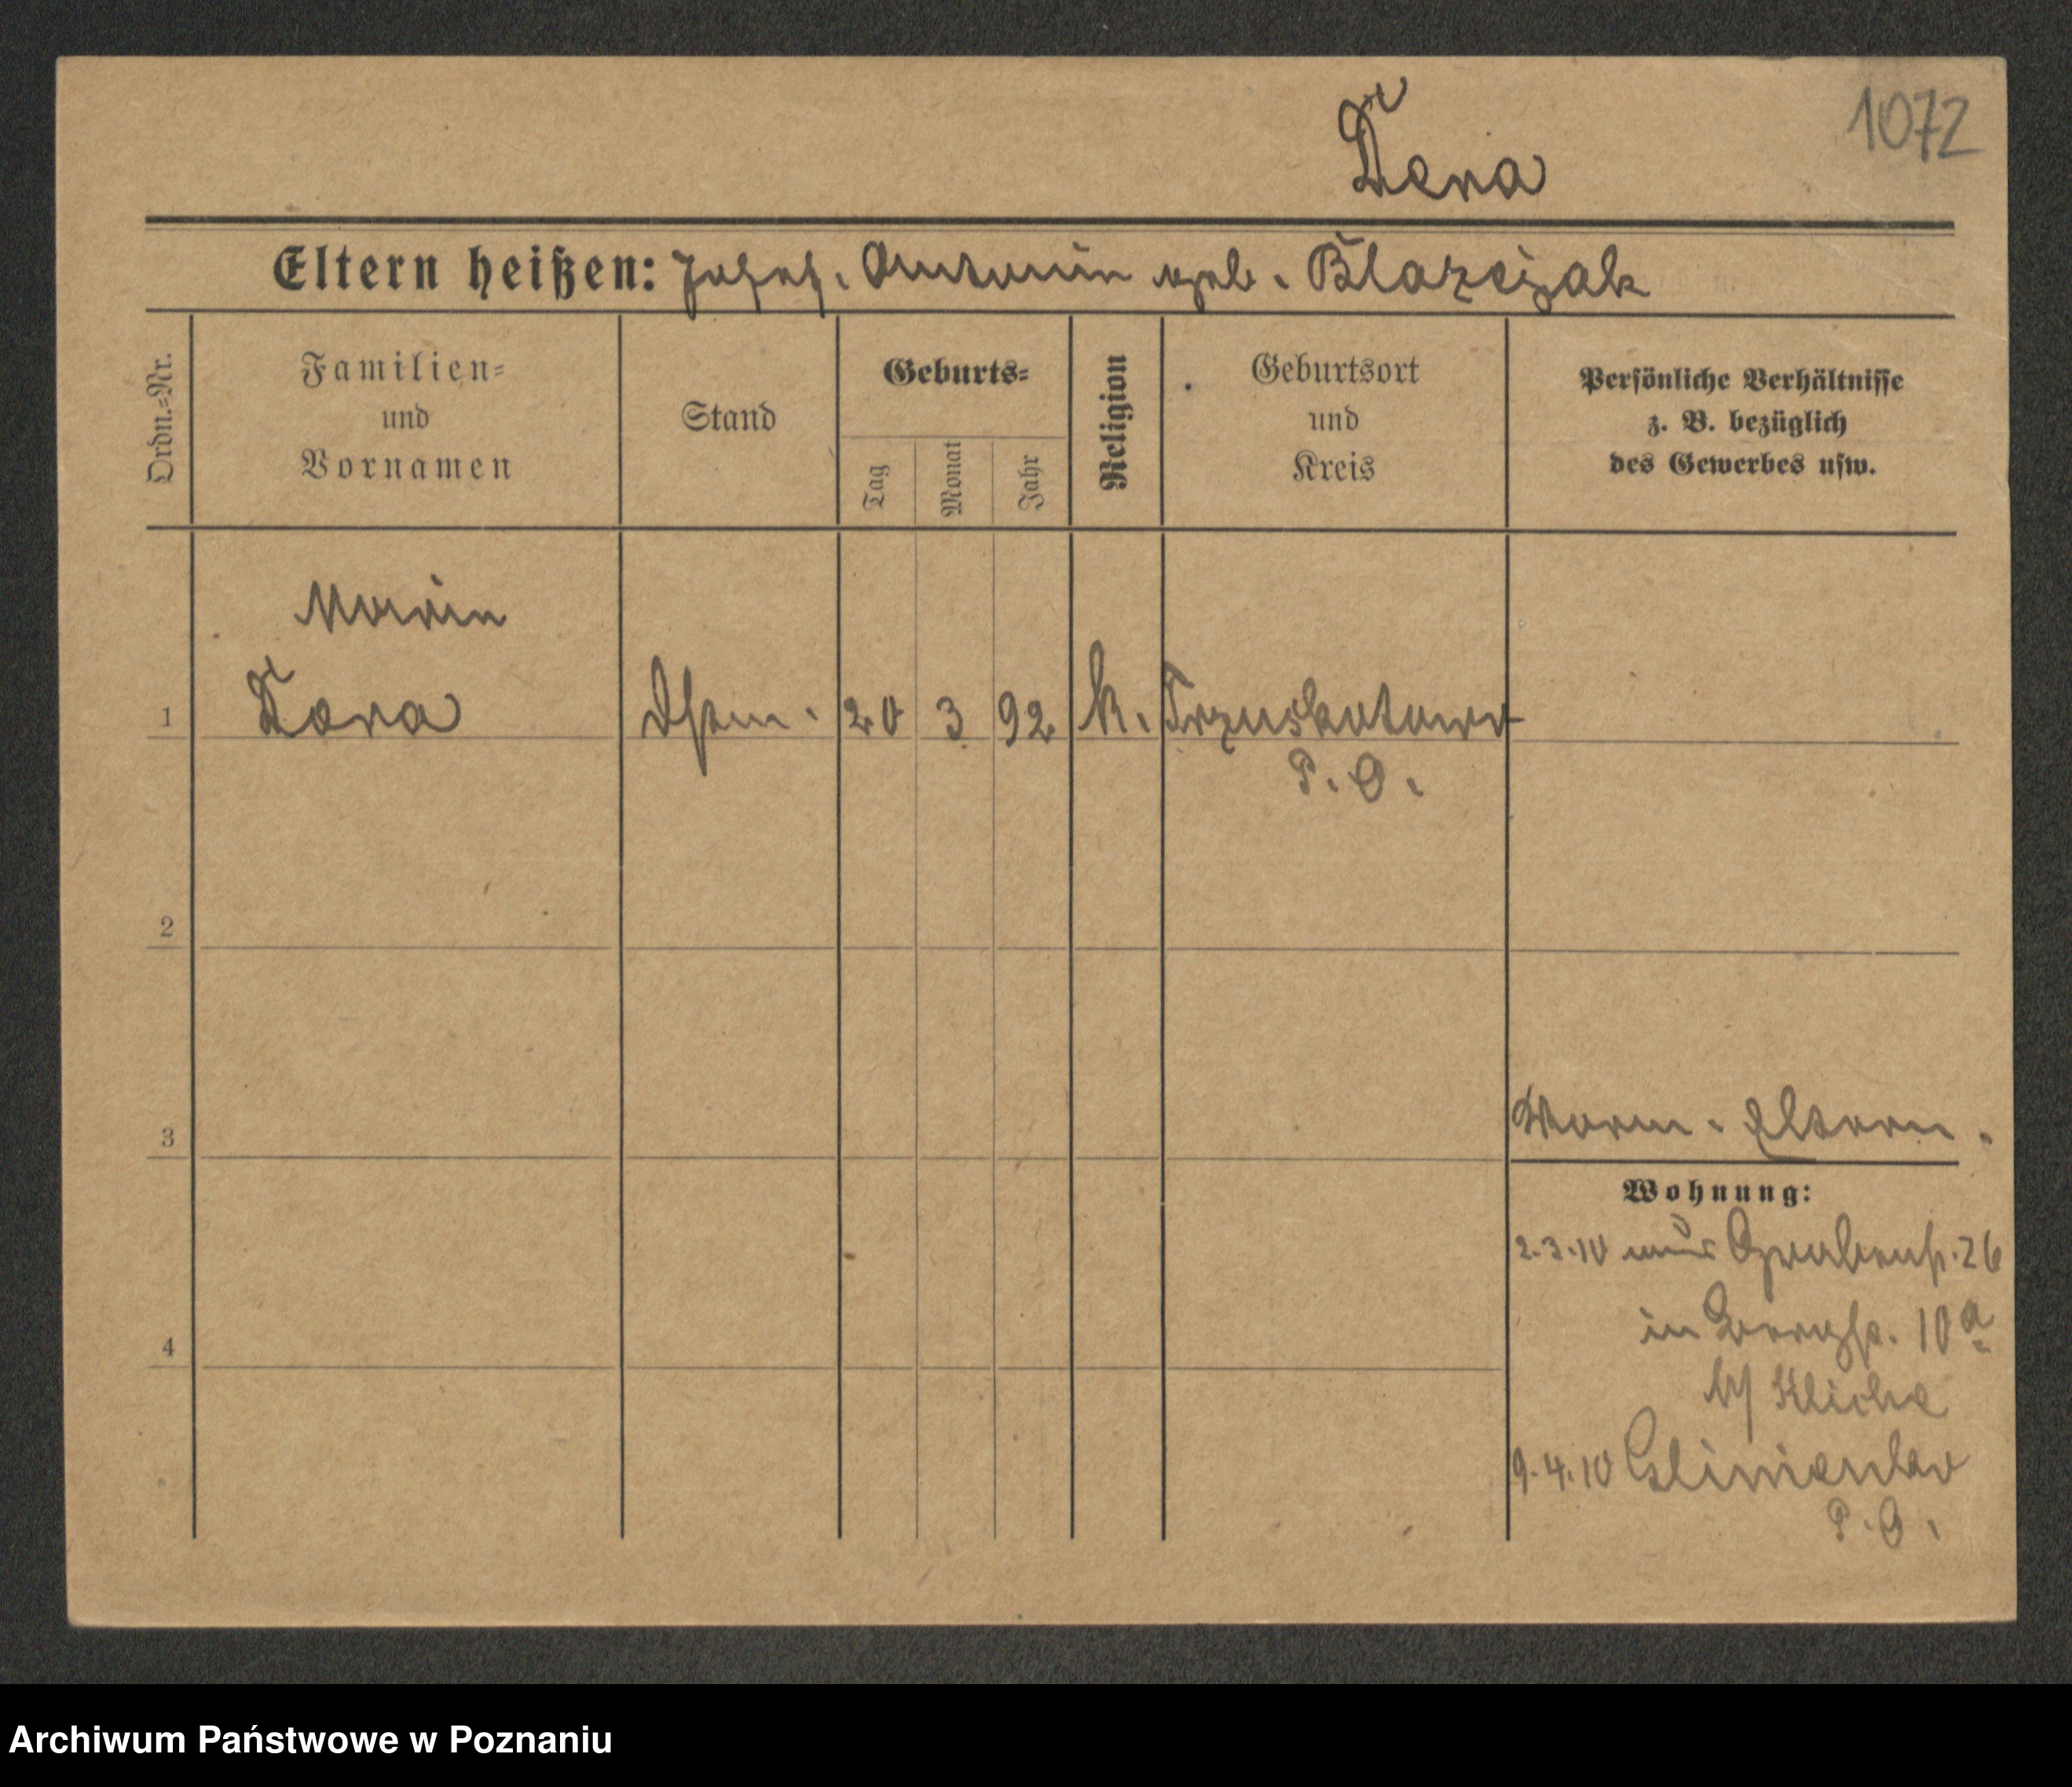 1072
Dera
Eltern heißen: Josef. Antonin geb. Blazejak
Ordn.=Nr.
Familien=
und
Vornamen
Stand
Geburts=
Tag
Monat
Jahr
Religion
Geburtsort
und
Kreis
Persönliche Verhältnisse
z. B. bezüglich
des Gewerbes usw.
Maria
1 Dera 20 3 92 k. Trzuskotowo
P. O.
2
3 Eltern.
Wohnung:
2.3.10 aus Grabenst. 26
in Bergst. 10a
b/
9.4.10 Glinienko
P. O.
4
Archiwum Państwowe w Poznaniu